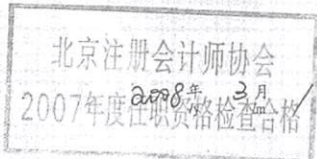 北京注册会计师协会
2008年 3月
2007年度任职资格检查合格